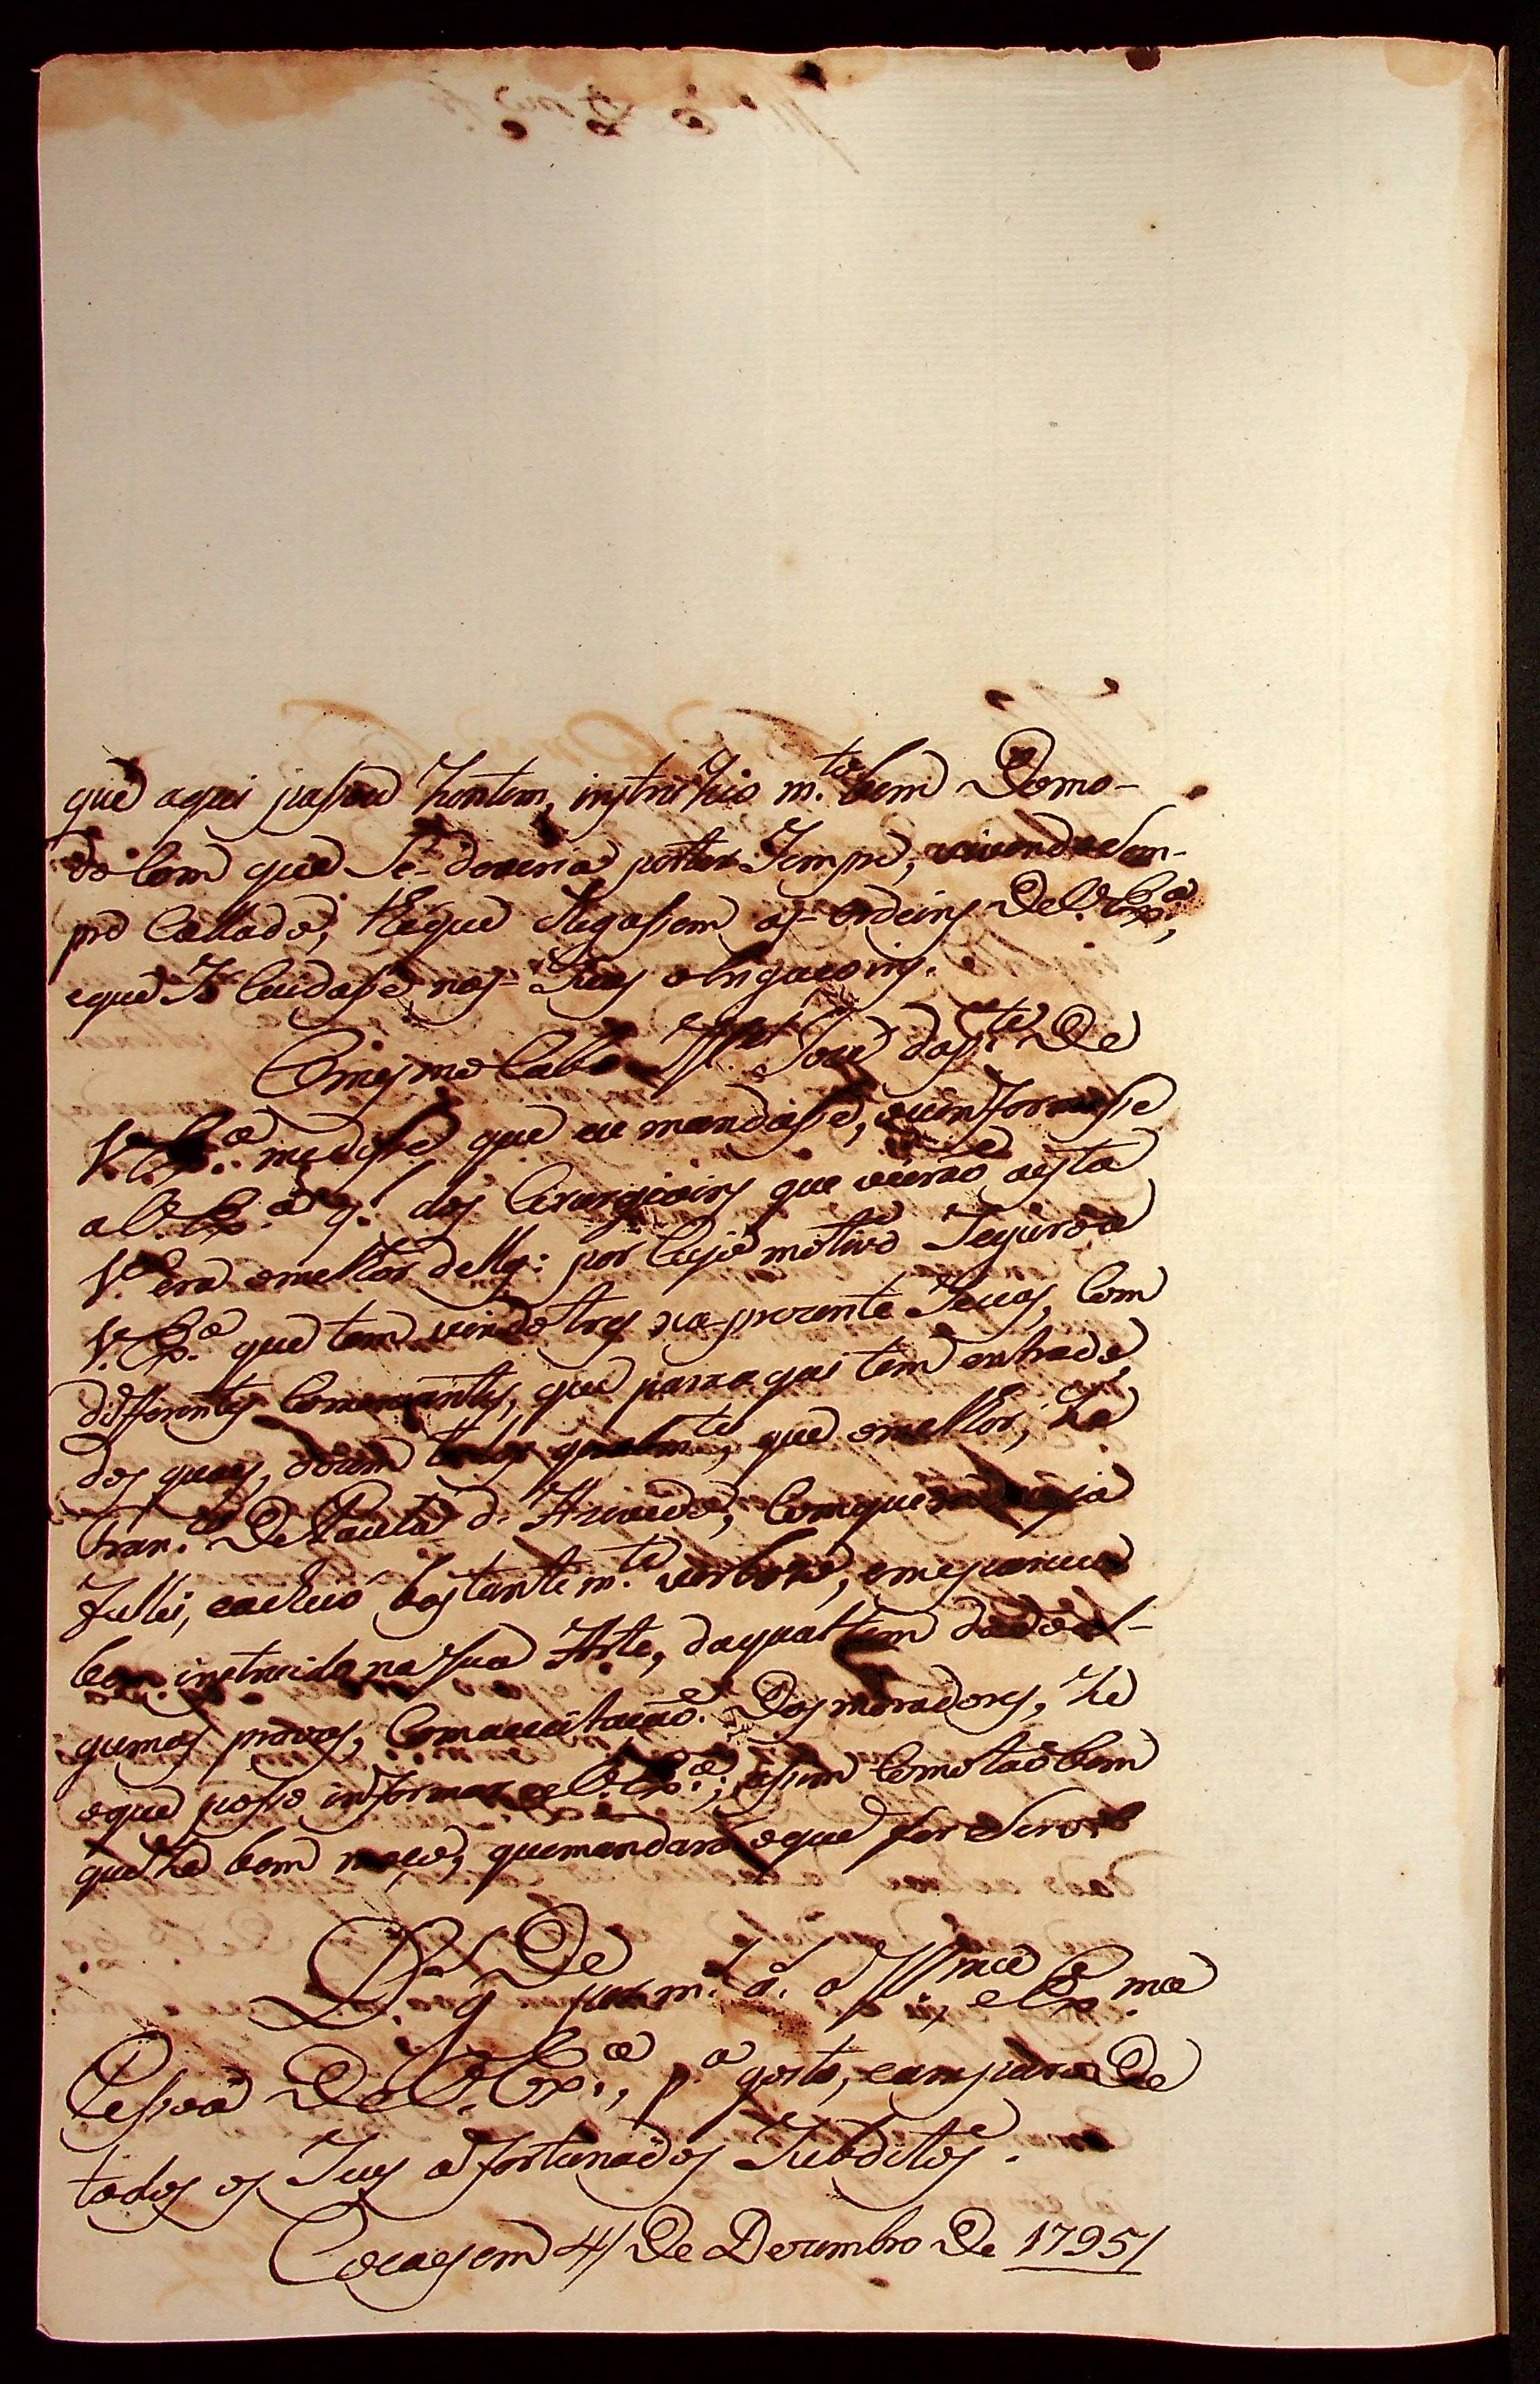 que aqui passou hontem, instruhio m.to bem Domo-
do Com que Se-deveria portar Sempre, vivendo Sem-
pre Callado, the que chegassem as-ordeins DeV.Exa,
eque So Cuidasse nas-Suas obrigacoins.
Omesmo Cabo Ill. José da p.te De
V.Ex.a medisse que eu mandasse, ou informasse
aV.Ex.a q.l dos Cirurgioins que vierão aesta
V.a era omelhor delles: por Cujo motivo Seguro a
V.Ex.a que tem vindo tres na-prezente Secas, Com
differentes Comerciantes, que para aqui tem entrado,
dos quaes, dizem todos geralm.te, que omelhor, he
Fran.co DePaula d. Azevedo, Comquem eu já
fallei, eachei-o bastantem.te verbozo, emepareceo
bem instruido na Sua Arte, daqual tem dado al-
gumas provas, Comaceitacão Dos moradores, he
oque posso informar aV.Ex.a; assim Como tãobem
que he bom moço, quemandara oque for Servido
D.s De g.e por m.s a.s a Ill.ma, e Ex.ma
Pessoa DeV.Ex.a, p.a gosto, eamparo De
todos os Seus afortunados Subditos.
Cocaes em 4 De Dezembro De 1795